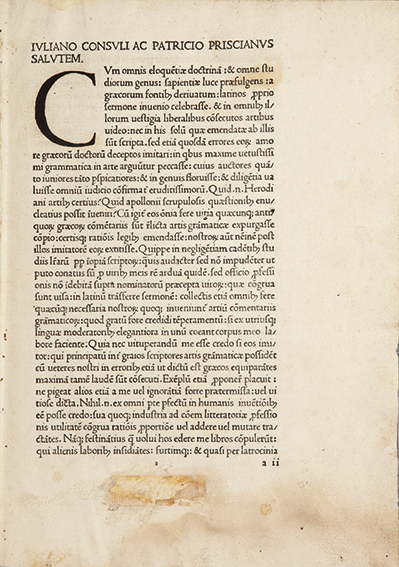 IVLIANO CONSVLI AC PATRICIO PRISCIANVS
SALVTEM.
CVm omnis eloquẽtiæ doctrinã: & omne stu
diorum genus: sapientiæ luce præfulgens: a
græcorum fontibꝫ deriuatum: latinos ꝓprio
sermone inuenio celebrasse. & in omnibꝫ il/
lorum uestigia liberalibus cõsecutos artibus
uideo: nec in his solũ quæ emendatæ ab illis
sũt scripta. sed etiã quosdã errores eorꝫ amo
re græcorũ doctorũ deceptos imitari: in qbus maxime uetustissi
mi grammatica in arte arguũtur peccasse: cuius auctores quãto sũt
iuniores tãto ꝑspicatiores: & in genuis floruisse: & diligẽtia ua
luisse omniũ iudicio cõfirmãt̃ eruditissimorũ. Quid.n. Herodi
ani artibꝫ certius? Quid apollonii scrupulosis quæstionibꝫ enu/
cleatius possit ĩueniri? Cũ igit̃ eos õnia fere uitia quæcunqꝫ anti
quorꝫ græcorꝫ cõmẽtariis sũt relicta artis grãmaticæ expurgasse
cõꝑio: certisqꝫ ratiõis legibꝫ emendasse: nostrorꝫ aũt neinẽ post
illos imitatorẽ eorꝫ extitisse. Quippe in negligẽtiam cadẽtibꝫ stu
diis lr̃arũ ꝓp ĩopiã scriptorꝫ: quis audacter sed nõ impudẽter ut
puto conatus sũ ꝓ uiribꝫ meis rẽ arduã quidẽ. sed officio ꝓfessi
onis nõ ĩdebitã supra nominatorũ præcepta uirorꝫ: quæ cõgrua
sunt uisa: in latinũ trãsferre sermonẽ: collectis etiã omnibꝫ fere
quæcũqꝫ necessaria nostrorꝫ quoqꝫ inueniunt̃ artiũ cõmentariis
grãmaticorꝫ: quod gratũ fore credidi tẽperamentũ: si ex utriusqꝫ
linguæ moderatoribꝫ elegantiora in unũ coeant corpus meo la/
bore faciente. Quia nec uituperandũ me esse credo si eos imi/
tor: qui principatũ int̃ graios scriptores artis grãmaticæ possidẽt
cũ ueteres nostri in erroribꝫ etiã ut dictũ est græcos equiparãtes
maximã tamẽ laudẽ sũt cõsecuti. Exẽplũ etiã ꝓponeŕ placuit: ne
ne pigeat alios etiã a me uel ignorãtia forte prætermissa: uel ui
tiose dicta. Nihil.n. ex omni pte ꝑfectũ in humanis inuẽtiõibꝫ
eẽ posse credo: sua quoqꝫ industria ad cõem litteratoriæ ꝓfessio
nis utilitatẽ cõgrua ratiõis ꝓportiõe uel addere uel mutare tra/
ctãtes. Nãqꝫ festinãtius q̃ uolui hos edere me libros cõpulerũt:
qui alienis laboribꝫ insidiãtes: furtimqꝫ: & quasi per latrocinia
a ii